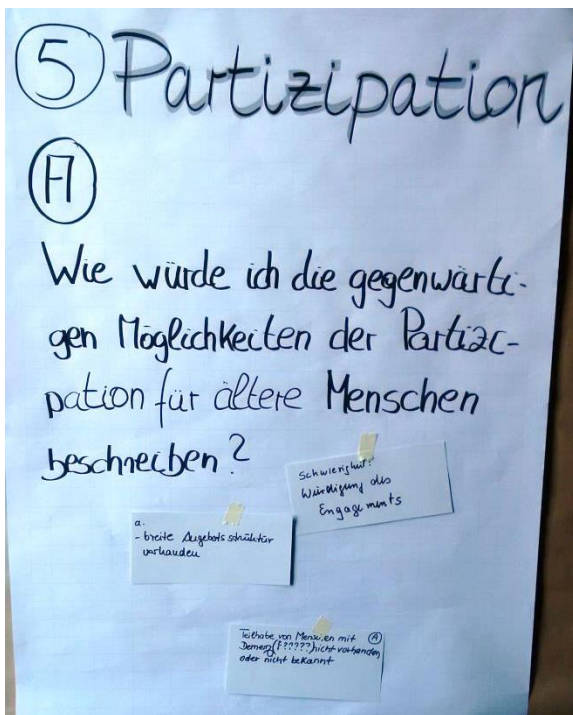 5 Partizipation
A
Wie würde ich die gegenwärti-
gen Möglichkeiten der Partizi-
pation für ältere Menschen
beschreiben?
Schwierigkeit:
Würdigung des
Engagements
a.
- breite Angebotsstruktur
vorhanden
Teilhabe von Menschen mit A
Demenz(F?????)nicht vorhanden
oder nicht bekannt